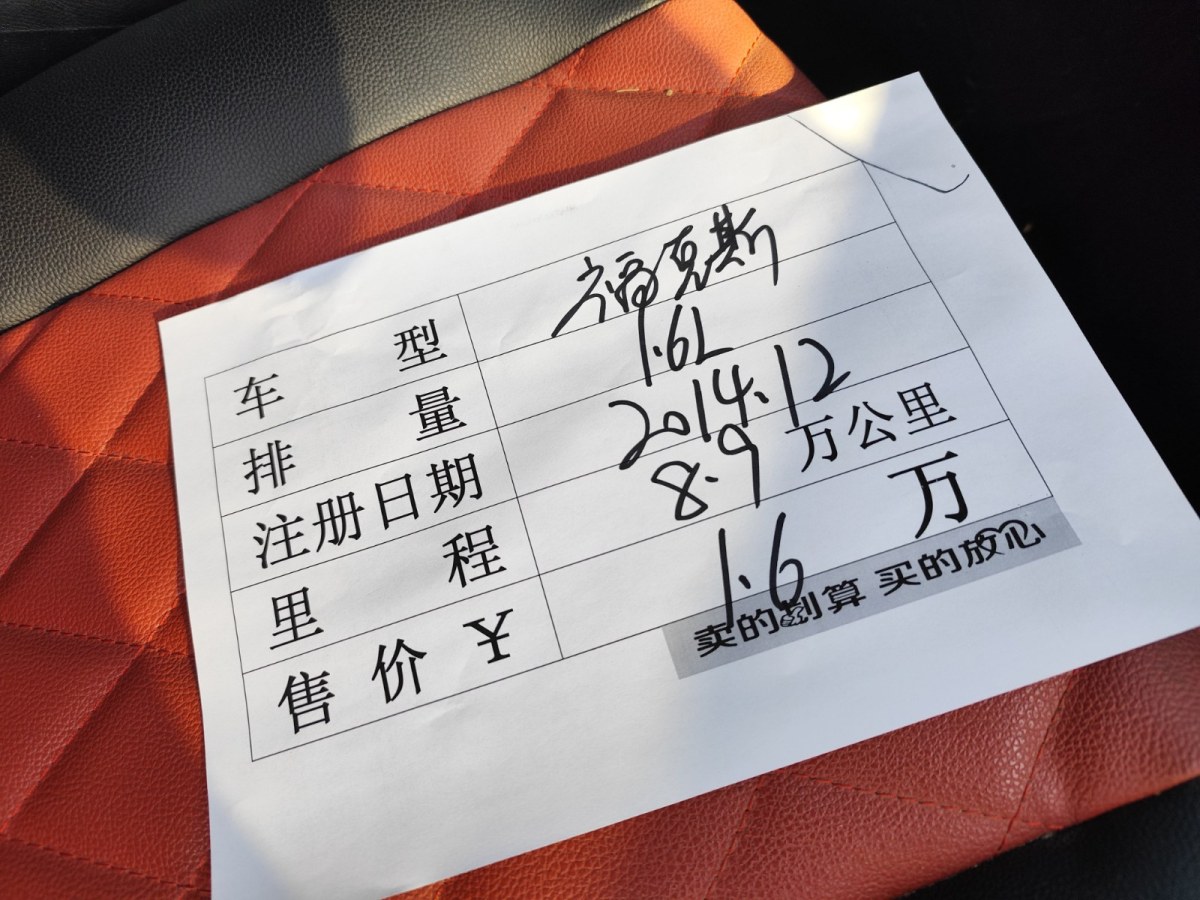 车型 福克斯
排量 1.6L
注册日期 2014.12
里程 8.9 万公里
售价¥ 1.6 万
卖的划算 买的放心